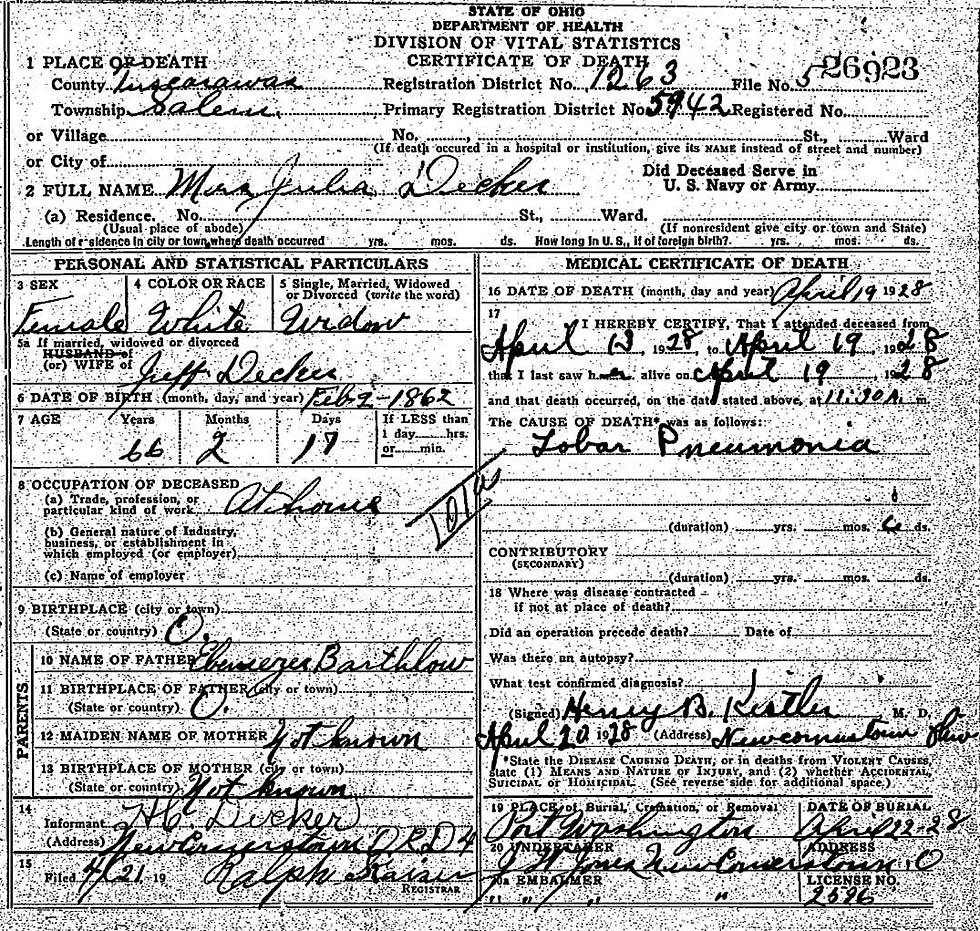 STATE OF OHIO
DEPARTMENT OF HEALTH
DIVISION OF VITAL STATISTICS
CERTIFICATE OF DEATH
1 PLACE OF DEATH
County Tuscarawas Registration District No. 1263 File No. 5 26923
Township Salem. Primary Registration District No. 5942 Registered No.
or Village No. , St., Ward
(If death occured in a hospital or institution, give its NAME instead of street and number)
or City of
2 FULL NAME Mrs Julia Decker
Did Deceased Serve in
U. S. Navy or Army
(a) Residence. No. St., Ward.
(Usual place of abode) (If nonresident give city or town and State)
Length of residence in city or town where death occurred yrs. mos. ds. How long in U. S., if of foreign birth? yrs. mos. ds.
PERSONAL AND STATISTICAL PARTICULARS
3 SEX 4 COLOR OR RACE 5 Single, Married, Widowed
or Divorced (write the word)
Female White Widow
5a If married, widowed or divorced
HUSBAND of
(or) WIFE of Jeff Decker
6 DATE OF BIRTH (month, day, and year) Feb 2-1862
7 AGE Years Months Days If LESS than
1 day hrs.
or min.
66 2 17
8 OCCUPATION OF DECEASED
(a) Trade, profession, or
particular kind of work At home
(b) General nature of Industry,
business, or establishment in
which employed (or employer)
(c) Name of employer
101a
9 BIRTHPLACE (city or town)
(State or country) O.
PARENTS
10 NAME OF FATHER Ebenezer Barthlow
11 BIRTHPLACE OF FATHER (city or town)
(State or country) O.
12 MAIDEN NAME OF MOTHER Not known
13 BIRTHPLACE OF MOTHER (city or town)
(State or country) Not known
14
Informant HC Decker
(Address) NewComerstown O RD 4
15
Filed 4/21 19 Ralph Kaiser
REGISTRAR
MEDICAL CERTIFICATE OF DEATH
16 DATE OF DEATH (month, day and year) April 19 1928
17
I HEREBY CERTIFY, That I attended deceased from
April 13, 1928, to April 19, 1928
that I last saw her alive on April 19 1928
and that death occurred, on the date stated above, at 11:30A. m.
The CAUSE OF DEATH* was as follows:
Lobar Pneumonia
(duration) yrs. mos. 6 ds.
CONTRIBUTORY
(SECONDARY)
(duration) yrs. mos. ds.
18 Where was disease contracted
if not at place of death?
Did an operation precede death? Date of
Was there an autopsy?
What test confirmed diagnosis?
(Signed) Henry B. Kistler M. D.
April 20 1928 (Address) Newcomerstown Ohio
*State the DISEASE CAUSING DEATH, or in deaths from VIOLENT CAUSES,
state (1) MEANS AND NATURE OF INJURY, and (2) whether ACCIDENTAL,
SUICIDAL or HOMICIDAL. (See reverse side for additional space.)
19 PLACE of Burial, Cremation, or Removal DATE OF BURIAL
Port Washington April 22-28
20 UNDERTAKER ADDRESS
J W Jones NewComerstown. O
20a EMBALMER LICENSE NO.
" " " " 2596